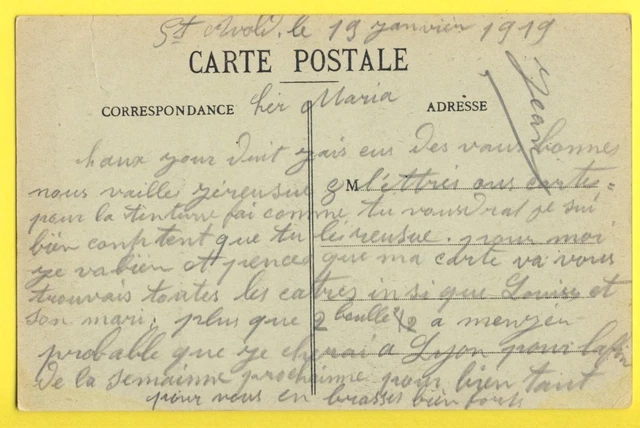 St Avold. le 19 janvier 1919
CARTE POSTALE
CORRESPONDANCE
hèr Maria
ADRESSE
Jean
haux jour duit jais eus des vaus bonnes
nous vaille jéreusue 8 M léttres ous carte=
pour la tinture fai comme tu voudrat je sui
bien conptent que tu léireusue. pour moi
je va bien et pence que ma carte va vous
trouvais toutes les catrez insi que Louise et
son mari. plus que 2 boulle 1/2 a menjén
probable que je cherai a Lyon pour lafin
de la semainne prochainne pour bien tant
pour vous en brasses bien forts